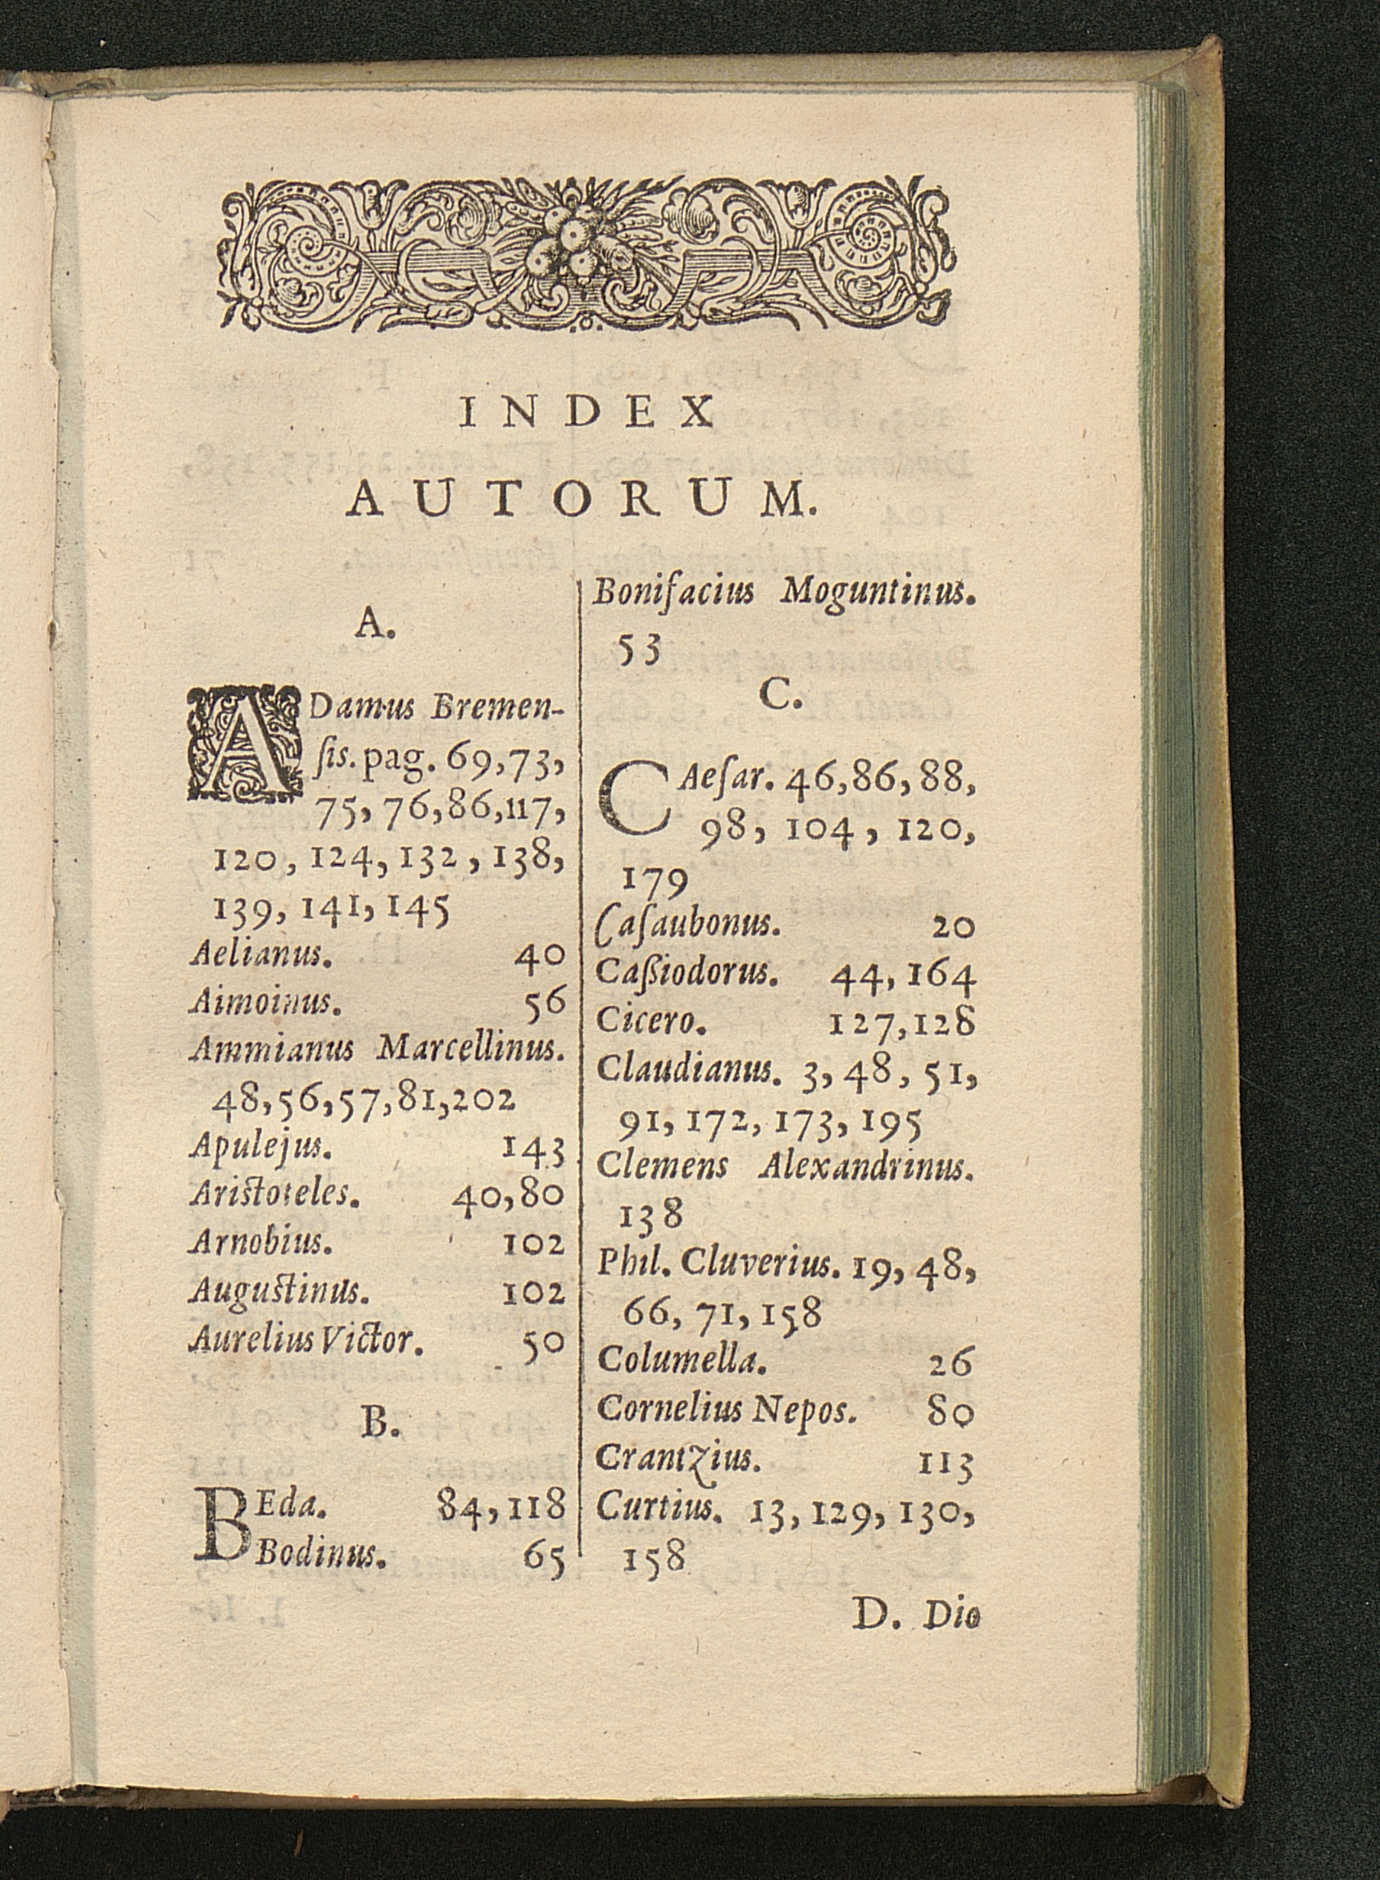 INDEX
AUTORUM.
A.
ADamus Bremen-
ſis. pag. 69,73,
75, 76,86,117,
120, 124, 132, 138,
139, 141, 145
Aelianus. 40
Aimoinus. 56
Ammianus Marcellinus.
48,56,57,81,202
Apulejus. 143
Ariſtoteles. 40,80
Arnobius. 102
Auguſtinus. 102
Aurelius Victor. 50
B.
BEda. 84,118
Bodinus. 65
Bonifacius Moguntinus.
53
C.
CAeſar. 46,86,88,
98, 104, 120,
179
Caſaubonus. 20
Caßiodorus. 44,164
Cicero. 127,128
Claudianus. 3,48, 51,
91, 172, 173, 195
Clemens Alexandrinus.
138
Phil. Cluverius. 19, 48,
66, 71, 158
Columella. 26
Cornelius Nepos. 80
Crantzius. 113
Curtius. 13, 129, 130,
158
D. Dio